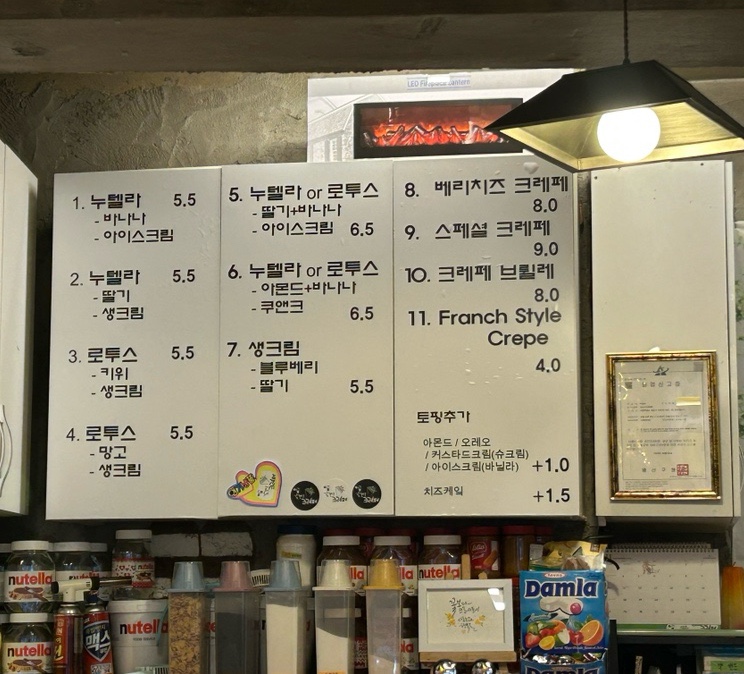 LED Fireplace Lantern
1. 누텔라 5.5
- 바나나
- 아이스크림
2. 누텔라 5.5
- 딸기
- 생크림
3. 로투스 5.5
- 키위
- 생크림
4. 로투스 5.5
- 망고
- 생크림
5. 누텔라 or 로투스
- 딸기+바나나
- 아이스크림 6.5
6. 누텔라 or 로투스
- 아몬드+바나나
- 쿠앤크
6.5
7. 생크림
- 블루베리
- 딸기 5.5
8. 베리치즈 크레페
8.0
9. 스페셜 크레페
9.0
10. 크레페 브륄레
8.0
11. Franch Style
Crepe
4.0
토핑추가
아몬드 / 오레오
/ 커스타드크림(슈크림)
/ 아이스크림(바닐라) +1.0
치즈케익 +1.5
nutella
nutella
nutella
nutella
맥스
Damla